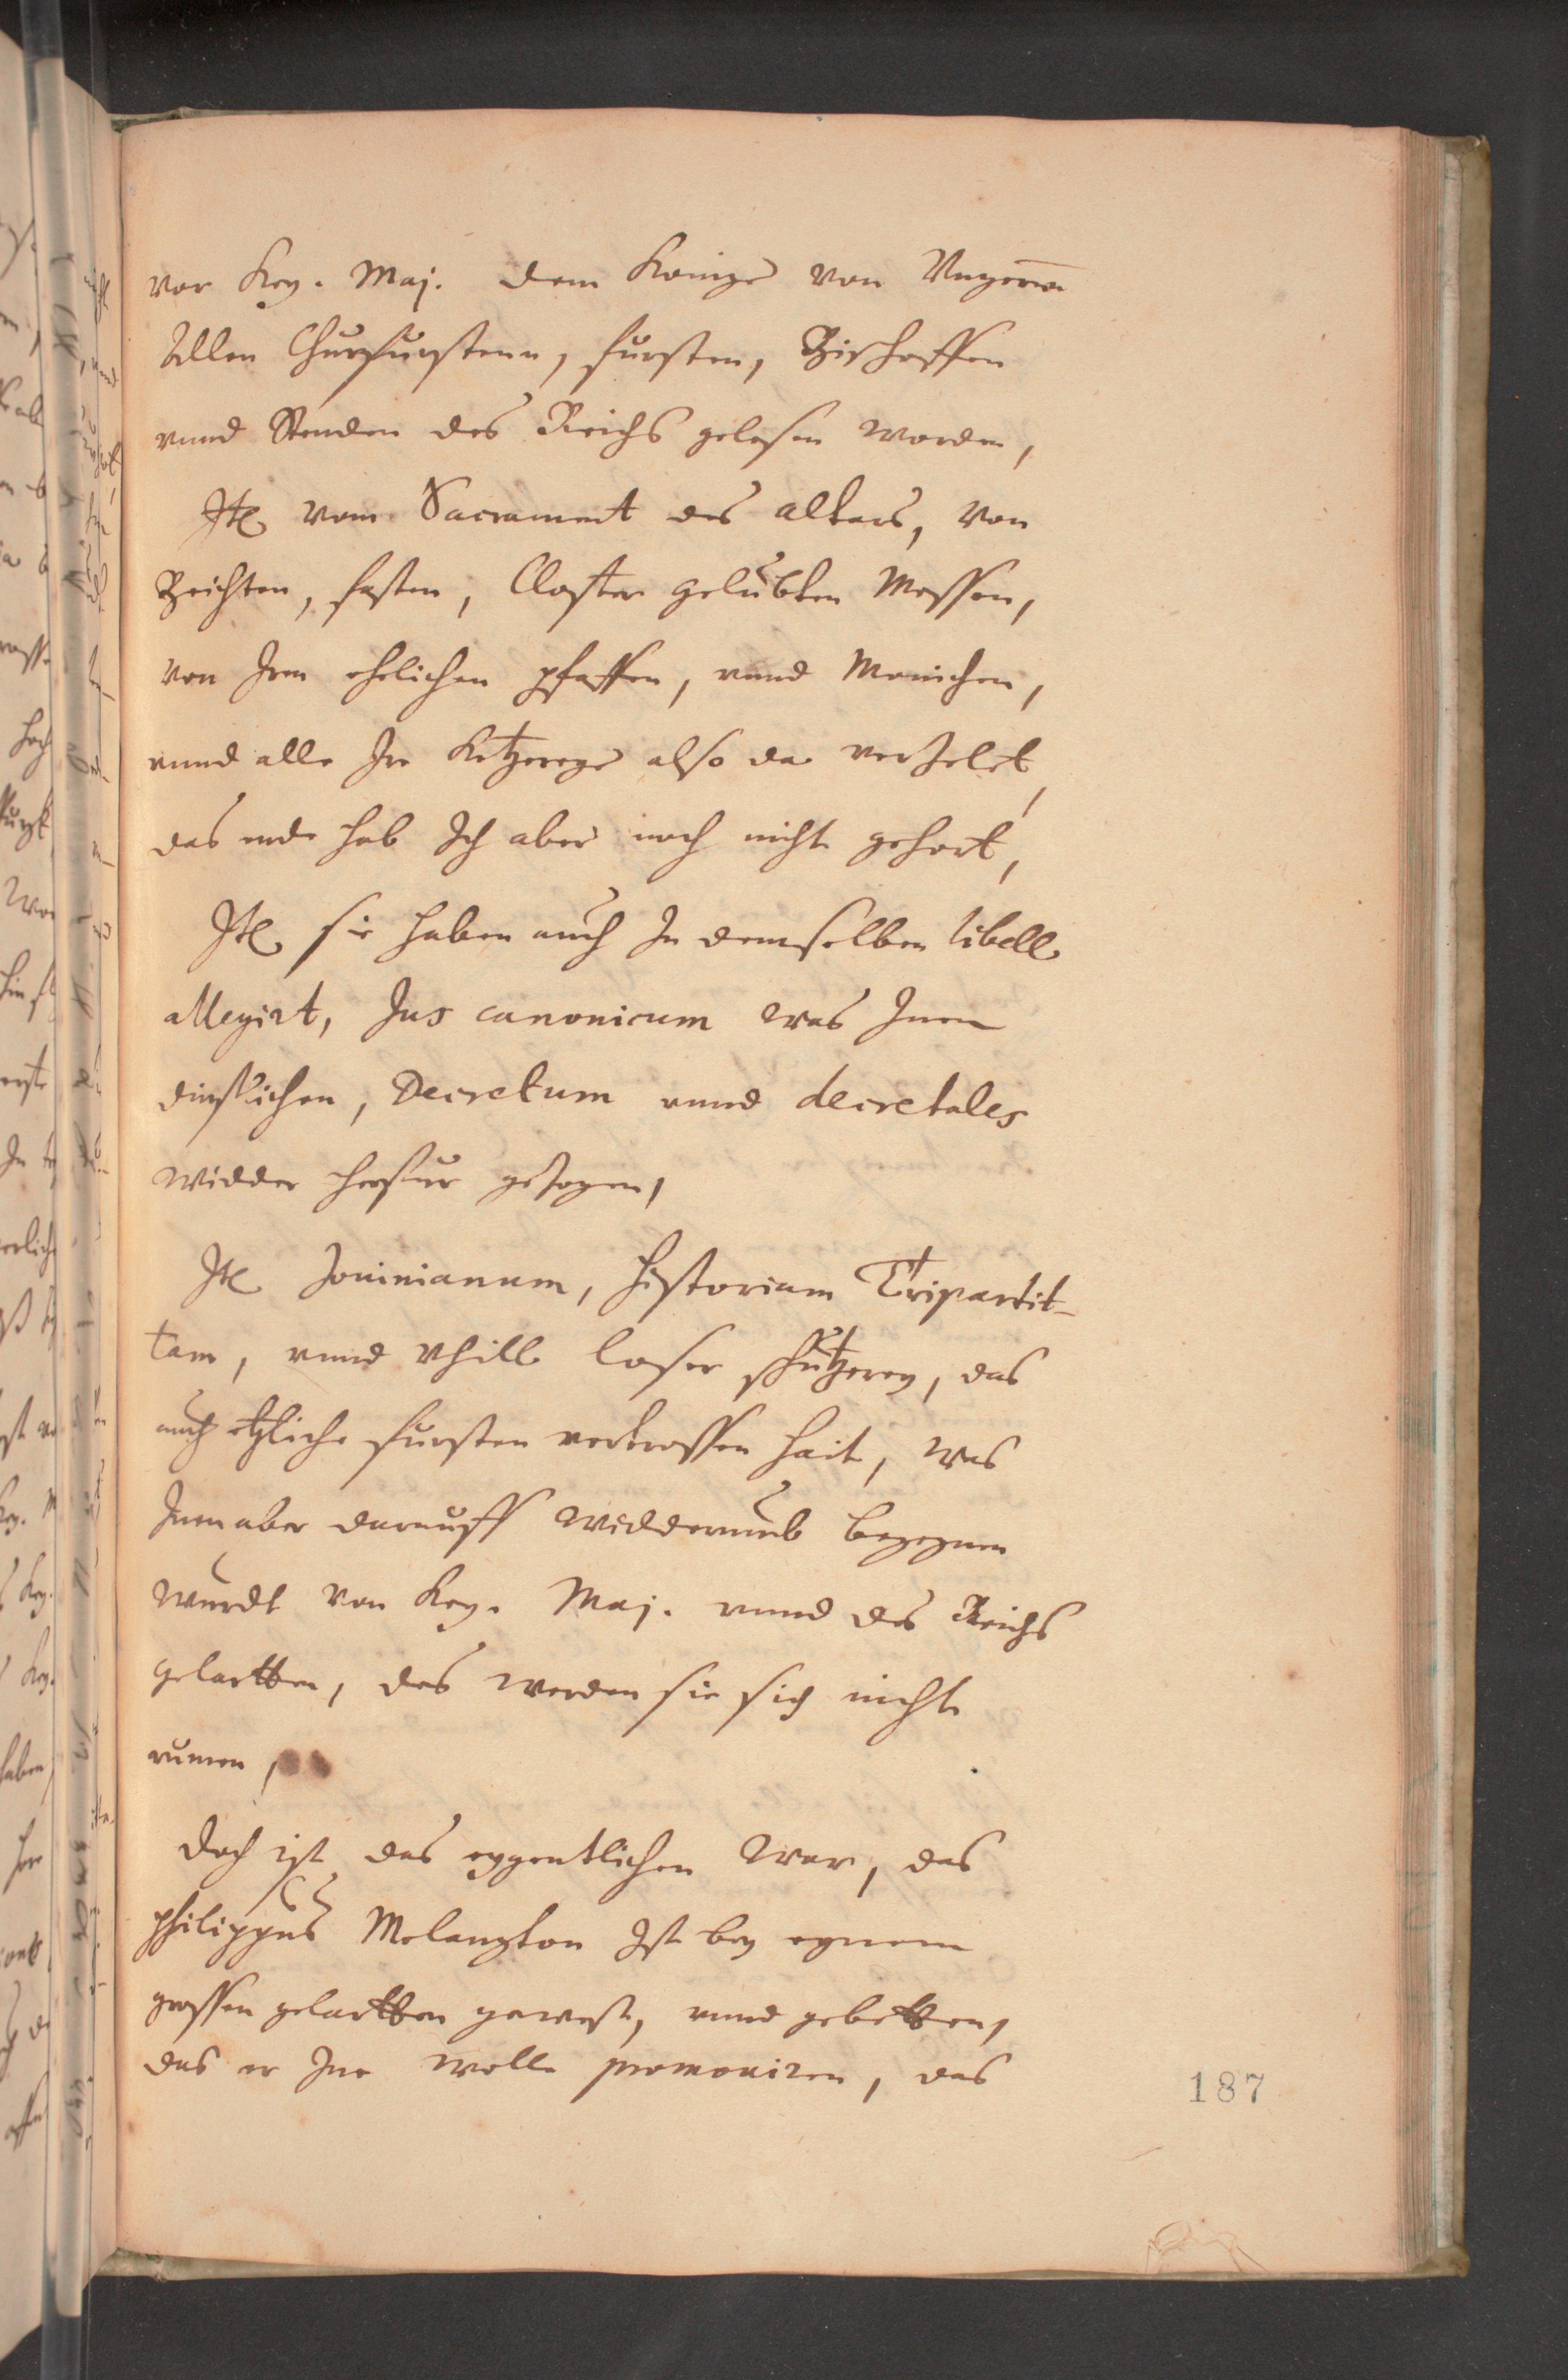 vor Key. Maj. dem Konige von Ungern
Allen Churfursten, fursten, Bischoffen
unnd Stenden des Reichs gelesen worden,
Itē vom Sacrament des altars, von
Beichten, fasten, Closter gelubten Messen,
von Iren ehelichen pfaffen, unnd Monichen,
unnd alle Ire Ketzereye also da verzelet,
das ende hab Ich aber noch nicht gehort,
Itē sie haben auch In demselben libell
allegirt, Jus canonicum was Inen
dinstlichen, Decretum unnd decretales
widder herfur gezogen,
Itē Jovinianum, historiam Tripartit-
tam, unnd vhill loser schützerey, das
auch etzliche fursten verdrossen hait, was
Inen aber darauff widderumb begegnen
wurdt von Key. Maj. unnd des Reichs
gelartten, des werden sie sich nicht
rumen,
doch ist das eygentlichen war, das
philippus Melangton Ist bey eynem
grossen gelartten gewest, unnd gebetten,
das er Ine wolle promoviren, das
187